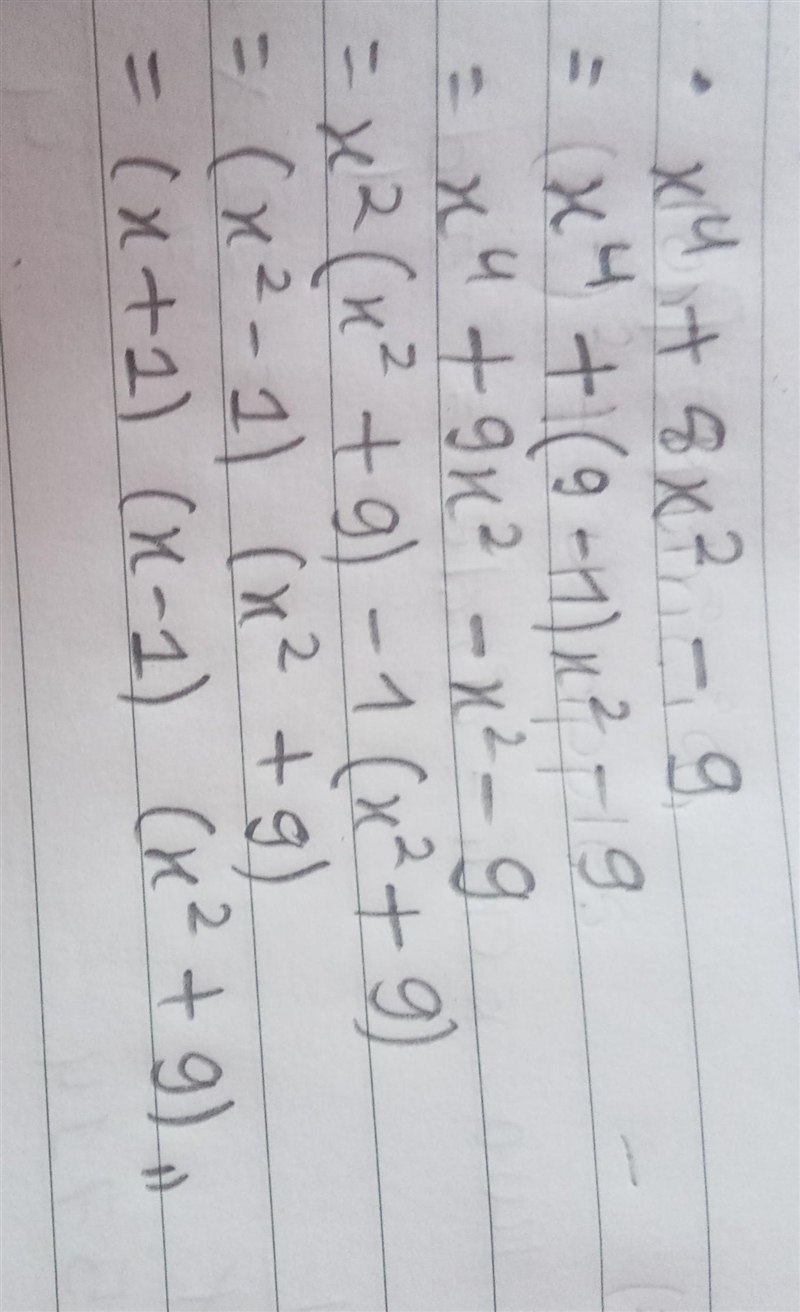 • x⁴ + 8x² - 9
= (x⁴ + (9 - 1)x² - 9
= x⁴ + 9x² - x² - 9
= x²(x² + 9) - 1(x² + 9)
= (x² - 1) (x² + 9)
= (x + 1) (x - 1) (x² + 9) "